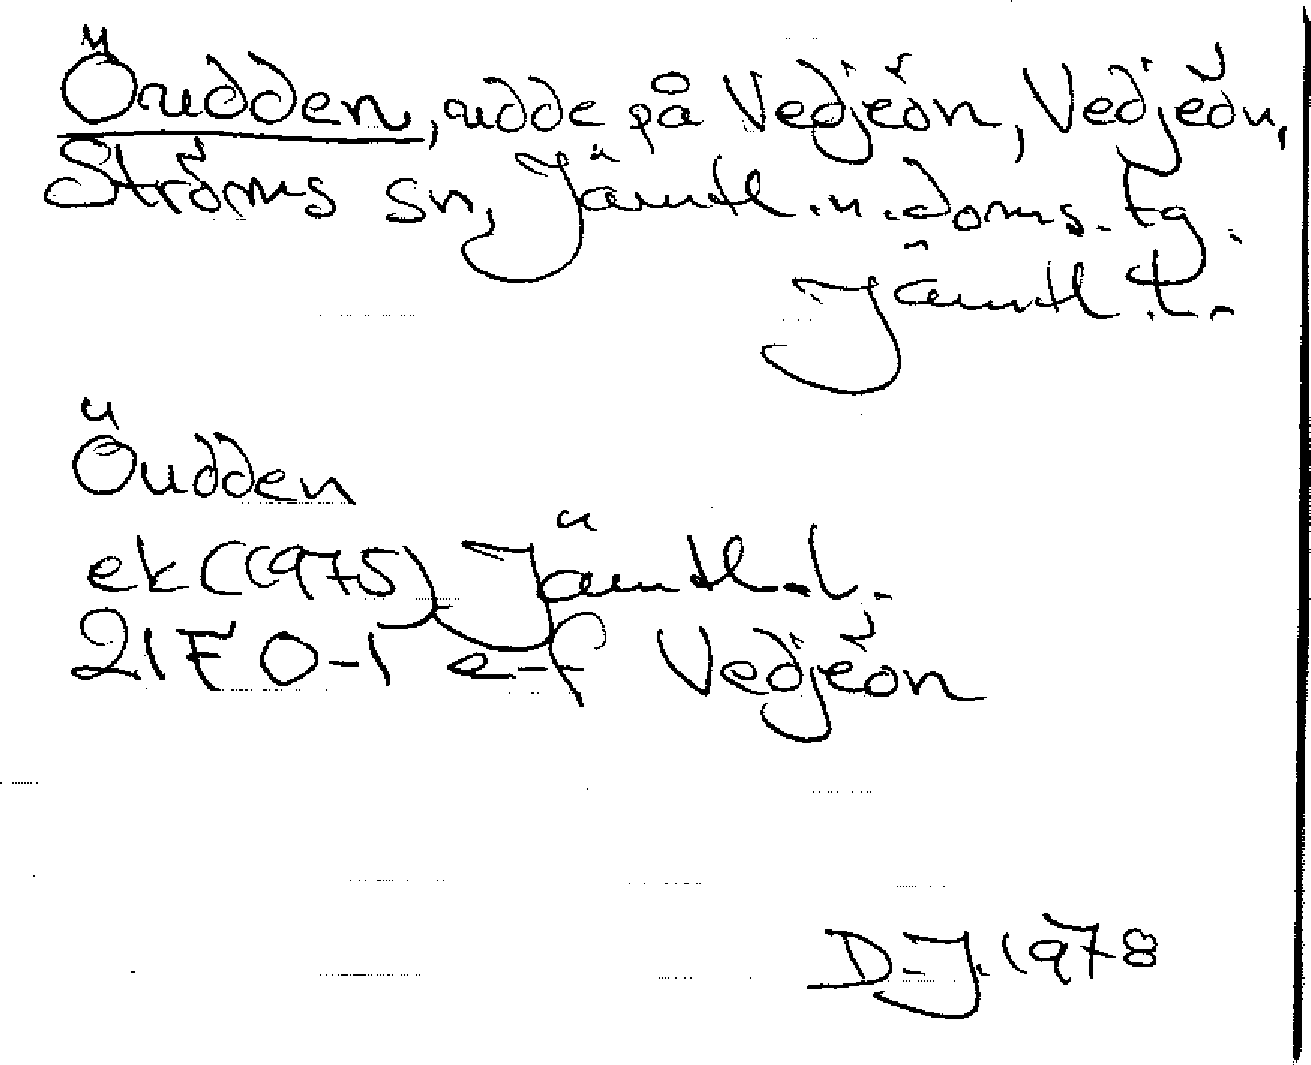 Öudden, udde på Vedjeön, Vedjeön,
Ströms sn, Jämtl.n.doms.tg.
Jämtl.l.
Öudden
ek (1975) Jämtl.l.
21F 0-1 e-f Vedjeön
D.J. 1978